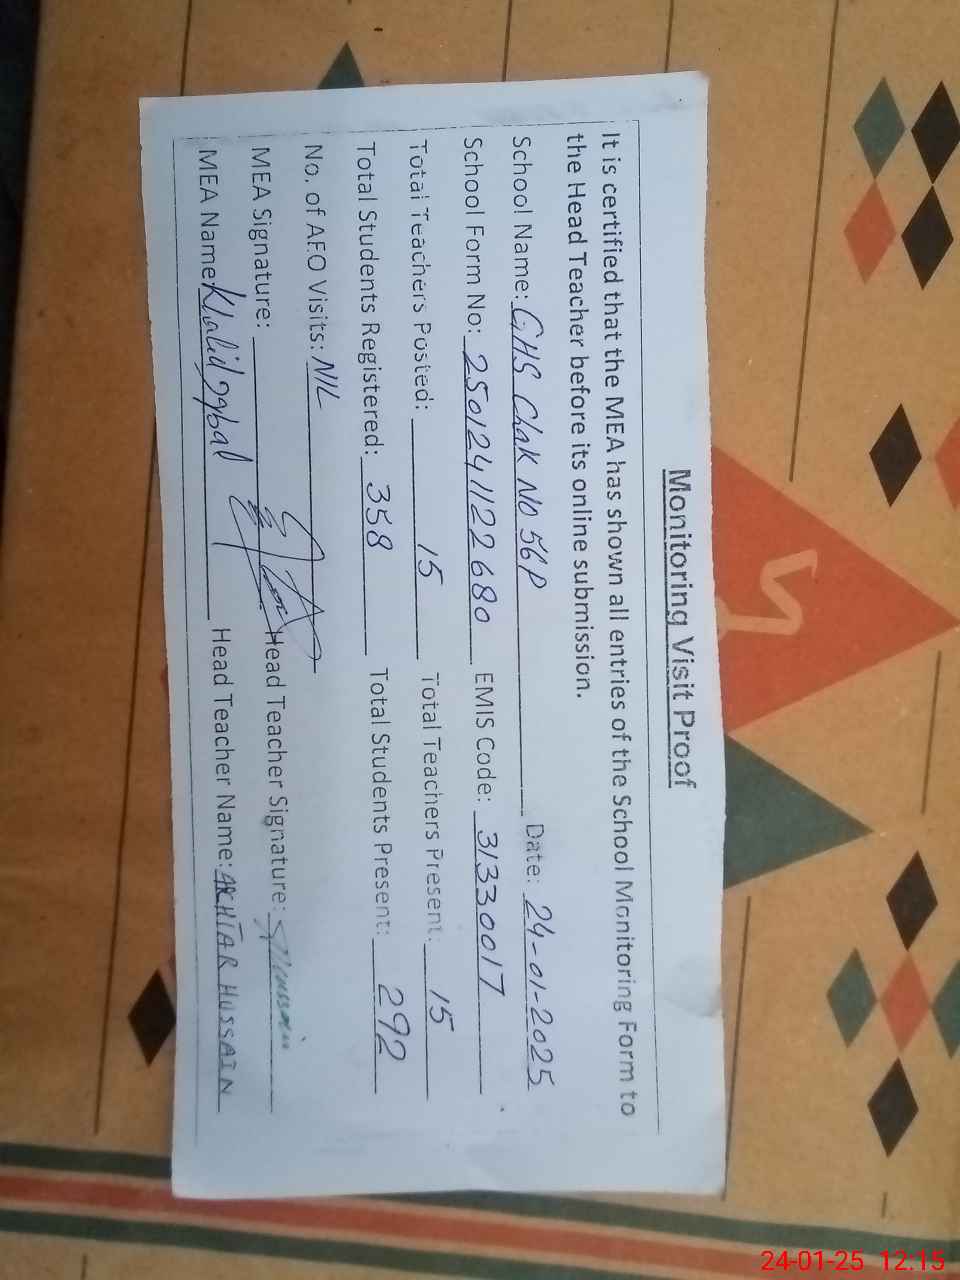 Monitoring Visit Proof
It is certified that the MEA has shown all entries of the School Monitoring Form to
the Head Teacher before its online submission.
School Name: GHS Chak No 56P Date: 24-01-2025
School Form No: 2501241122680 EMIS Code: 31330017
Total Teachers Posted: 15 Total Teachers Present: 15
Total Students Registered: 358 Total Students Present: 292
No. of AEO Visits: NIL
MEA Signature: Head Teacher Signature: Hussain
MEA Name: Khalid Iqbal Head Teacher Name: AKHTAR HUSSAIN
24-01-25 12:15